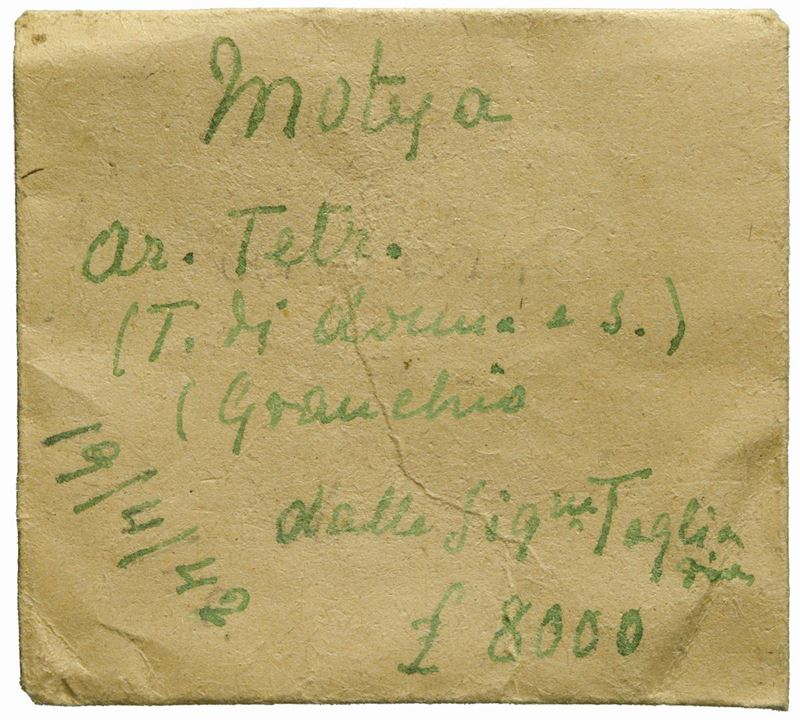 Motya
ar. Tetr.
(T. di donna a s.)
(Granchio
dalle Sig.ne Taglia
£ 8000